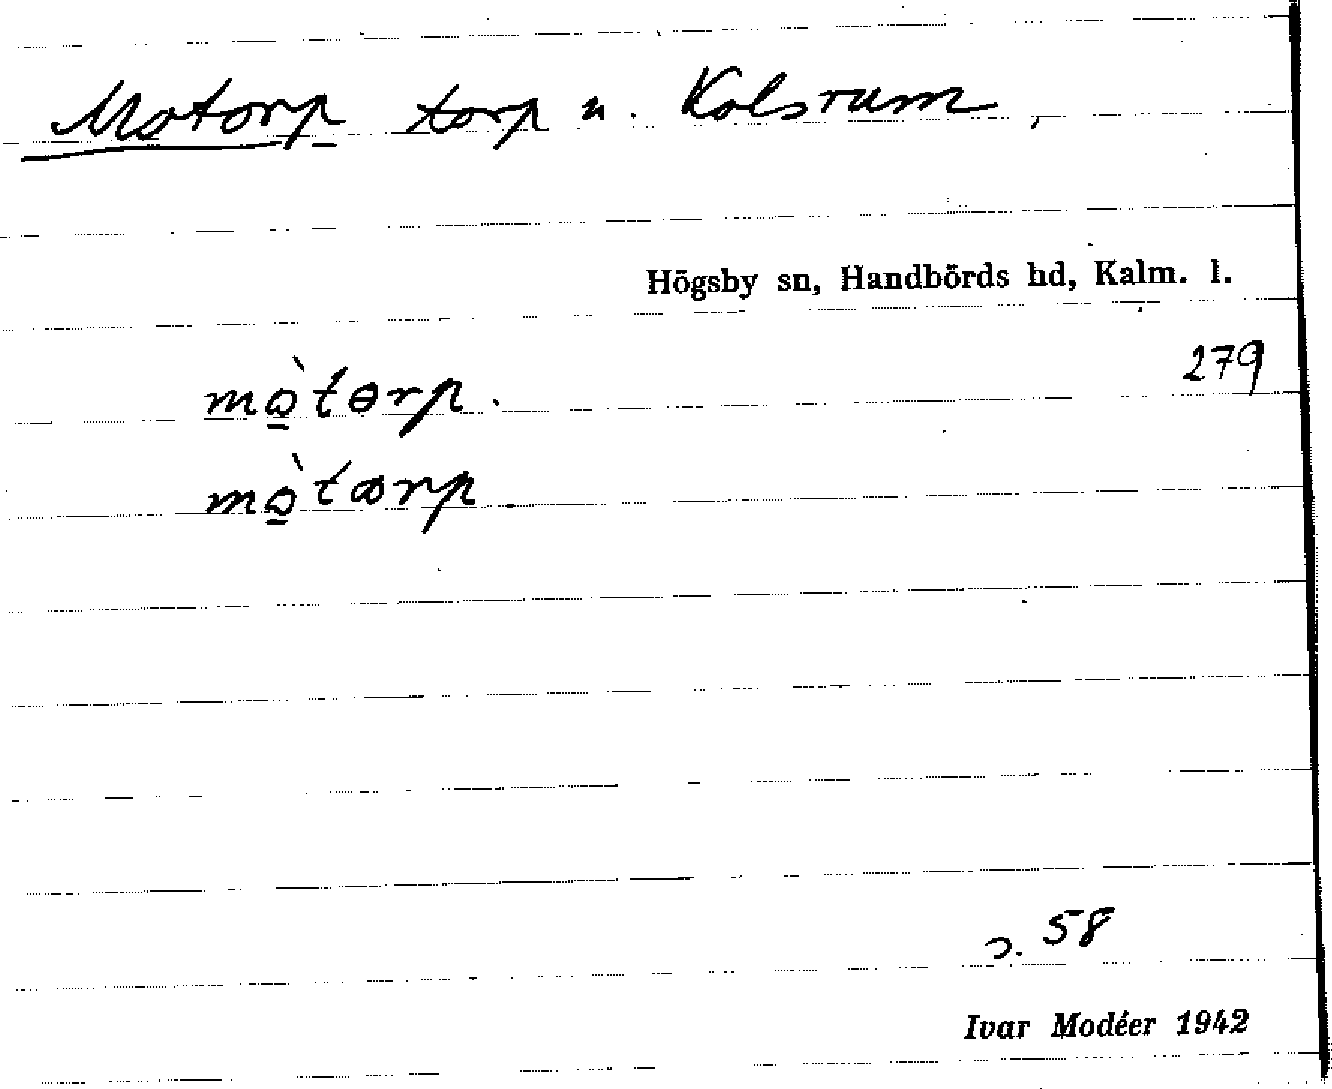 Motorp torp u. Kolsrum,
Högsby sn, Handbörds hd, Kalm. l.
279
mò̱tɵrp.
mò̱tꝏrp
s. 58
Ivar Modéer 1942